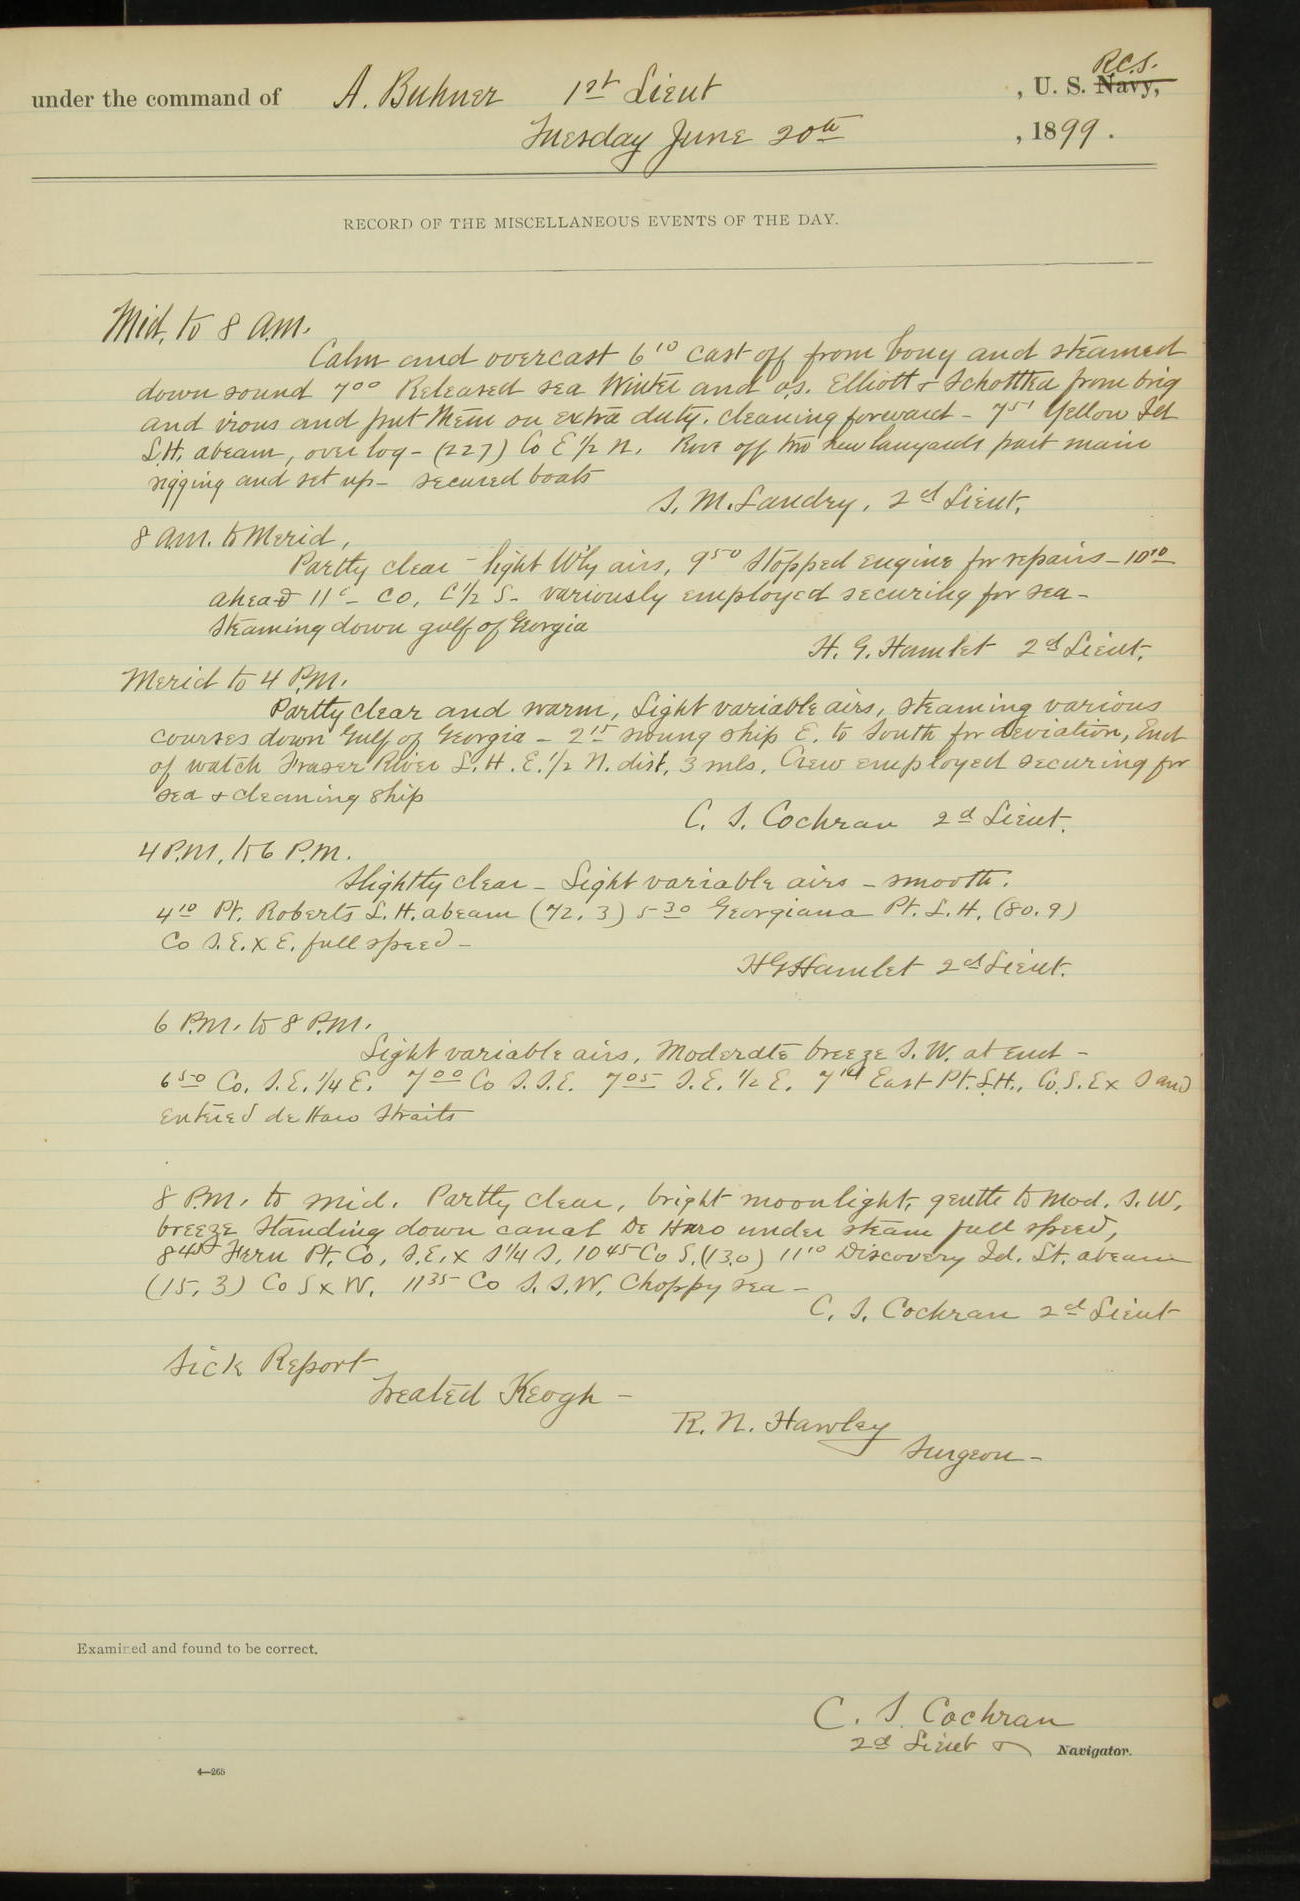 R.C.S.
under the command of A. Buhner 1st Lieut , U. S. Navy,
Tuesday June 20th , 1899.
RECORD OF THE MISCELLANEOUS EVENTS OF THE DAY.
Mid. to 8 A.M.
Calm and overcast 6 10 cast off from bouy and steamed
down sound 7 00 Released sea Winter and o.s. Elliott & Schottted from brig
and irons and put them on extra duty. cleaning forward - 7 51 Yellow Id
L.H. abeam, over log - (227) Co E 1/2 N. Rove off two new lanyards port main
rigging and set up - secured boats
S. M. Landry, 2d Lieut.
8 a.m. to Merid,
Partly clear - light W'ly airs, 9 50 Stopped engine for repairs - 10 10
ahead 11 - Co, E 1/2 S - variously employed securing for sea -
Steaming down gulf of Georgia
H. G. Hamlet 2d Lieut.
Merid to 4 P.M.
Partly clear and warm, Light variable airs, steaming various
courses down Gulf of Georgia - 2 15 swung ship E. to South for deviation, End
of watch Fraser River L. H. E. 1/2 N. dist, 3 mls. Crew employed securing for
sea & cleaning ship
C. S. Cochran 2d Lieut.
4 P.M. to 6 P.M.
Slightly clear - Light variable airs - smooth.
4 10 Pt. Roberts L. H. abeam (72.3) 5 30 Georgiana Pt. L. H. (80.9)
Co S.E. x E. full speed -
H G Hamlet 2d Lieut.
6 P.M. to 8 P.M.
Light variable airs, Moderate breeze S. W. at End -
6 50 Co. S. E. 1/4 E. 7 00 Co S.S.E. 7 05 S. E. 1/2 E. East Pt. L.H., Co. S. E x S and
entered de Haro Straits
8 P.M. to Mid. Partly clear, bright moonlight, gentle to Mod. S. W.
breeze Standing down canal De Haro under steam full speed,
Fern Pt. Co, S. E. x S 1/4 S. 10 45 Co S. (13.0) 11 10 Discovery Id. Lt. abeam
(15.3) Co S x W. 11 35 Co S. S. W. Choppy sea -
C. S. Cochran 2d Lieut
Sick Report
Treated Keogh -
R. N. Hawley
Surgeon -
Examined and found to be correct.
C. S. Cochran
2d Lieut & Navigator.
4—265